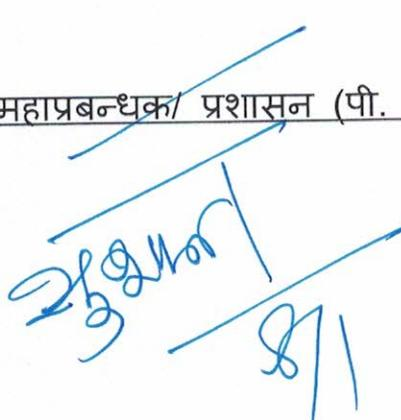 महाप्रबन्धक/ प्रशासन (पी.
8/1